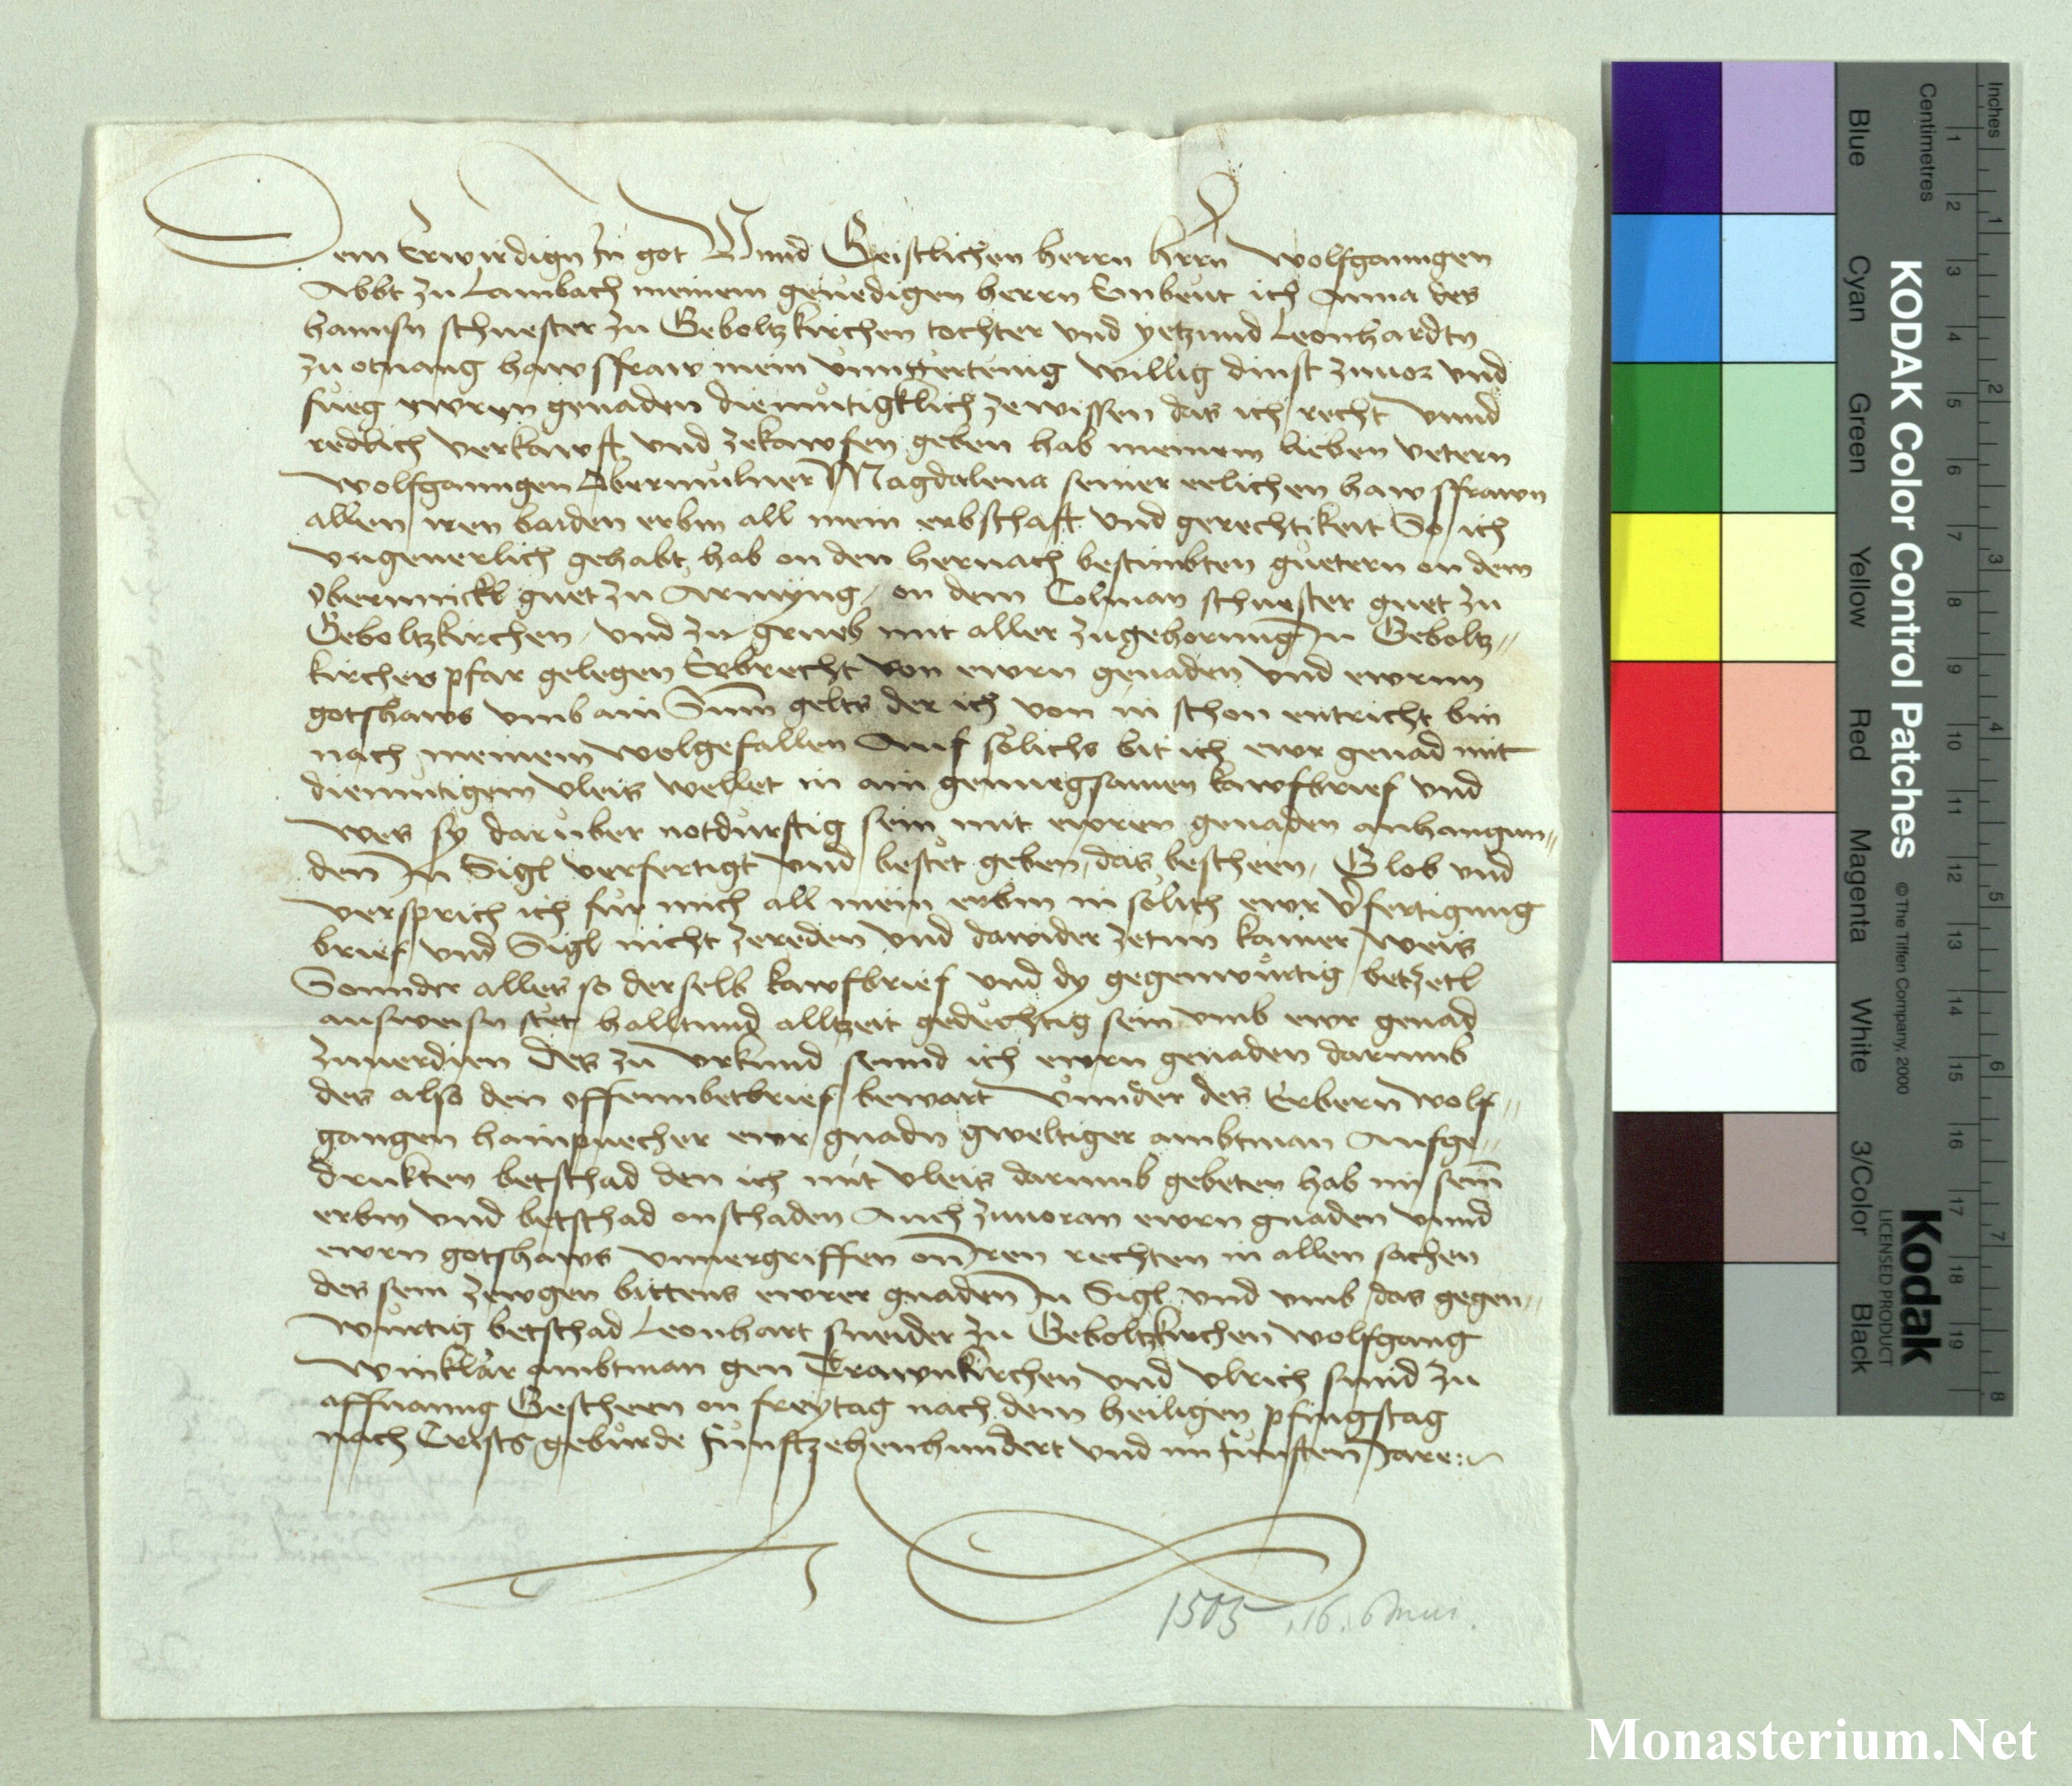 Dem Erwirdign In got Vnnd Geistlichen herrn hrrn Wolfganngen
Abbt zu Lambach meinem genedigen herrn Embeut ich Anna des
hannsn schuester zu Geboltzkirchen tochter vnd yetzund Leonhardtn
zu otnang hawsfraw mein vnnttertenig willig dinst zuuor vnd
fueg ewryn genaden diemutigklich zewissen das ich recht vnnd
redlich verkawft vnd zekawfen geben hab meinem lieben vetern
Wolfganngen Obermulner Magdalena seiner eelichen hawsfrawn
allen iren baiden erbm all mein erbschaft vnd gerechtikeit So ich
vngeuerlich gehabt hab on den hernach bestimbten guetern on dem
guet zu on dem Colman schuester guet zu
Geboltzkirchen vnd zu grueb mit aller zugehorung In Geboltz„
kircher pfar gelegen Erbrecht von ewrn genaden vnd ewrm
gotshaws vmb ain Sum gelts der ich von in schon entricht bin
nach meinem wolgefallen Auf solichs bit ich ewr genad mit
diemutigem vleis wellet in ain genuegsamen kawfbrief vnd
wes sy daruber notdurftig sein mit ewren genaden anhangun„
den In Sigl verfertigt vnd bestet geben, das bescheen, Glob vnd
versprich ich fur mich all mein erbm in solich ewr vfertigung
brief vnd Sigl nicht zereden vnd dawider zetun kainer weis
Sonnder alles so derselb kawfbrief vnd dy gegenwurtig betzetl
ausweisn stet halltund alltzeit gedechtig sein vmb ewr genad
zuuerdien Des zu vrkund sennd ich ewrn genaden darumb
des also den offennbetbrief bewart vnnder des Erbern wolf„
gangen hainpuecher ewr gnadn gweltiger ambtman Aufge„
drukten betschad den ich mit vleis darumb gebeten hab im sein
erbm vnd betschad onschaden Auch zuuoran ewrn gnaden vnnd
ewrn gotshaws vnuergriffen on Iren rechten in allen sachen
des sein zewgen bittens ewrer gnaden In Sigl vnd vmb das gegen„
wurtig betschad Leonhart sneider zu Geboltzkirchen wolfgang
Winklar ambtman gen Trawnkirchen vnd vlrich smid zu
affnanng Gescheen on freytag nach dem heiligen pfingstag
nach Crists geburde funftzehenhundert vnd im funften Jare
1505 16. Mai.
Inches
Centimetres
1 2 3 4 5 6 7 8
1 2 3 4 5 6 7 8 9 10 11 12 13 14 15 16 17 18 19
KODAK Color Control Patches © The Tiffen Company, 2000
Kodak
LICENSED PRODUCT
Blue
Cyan
Green
Yellow
Red
Magenta
White
3/Color
Black
Monasterium.Net